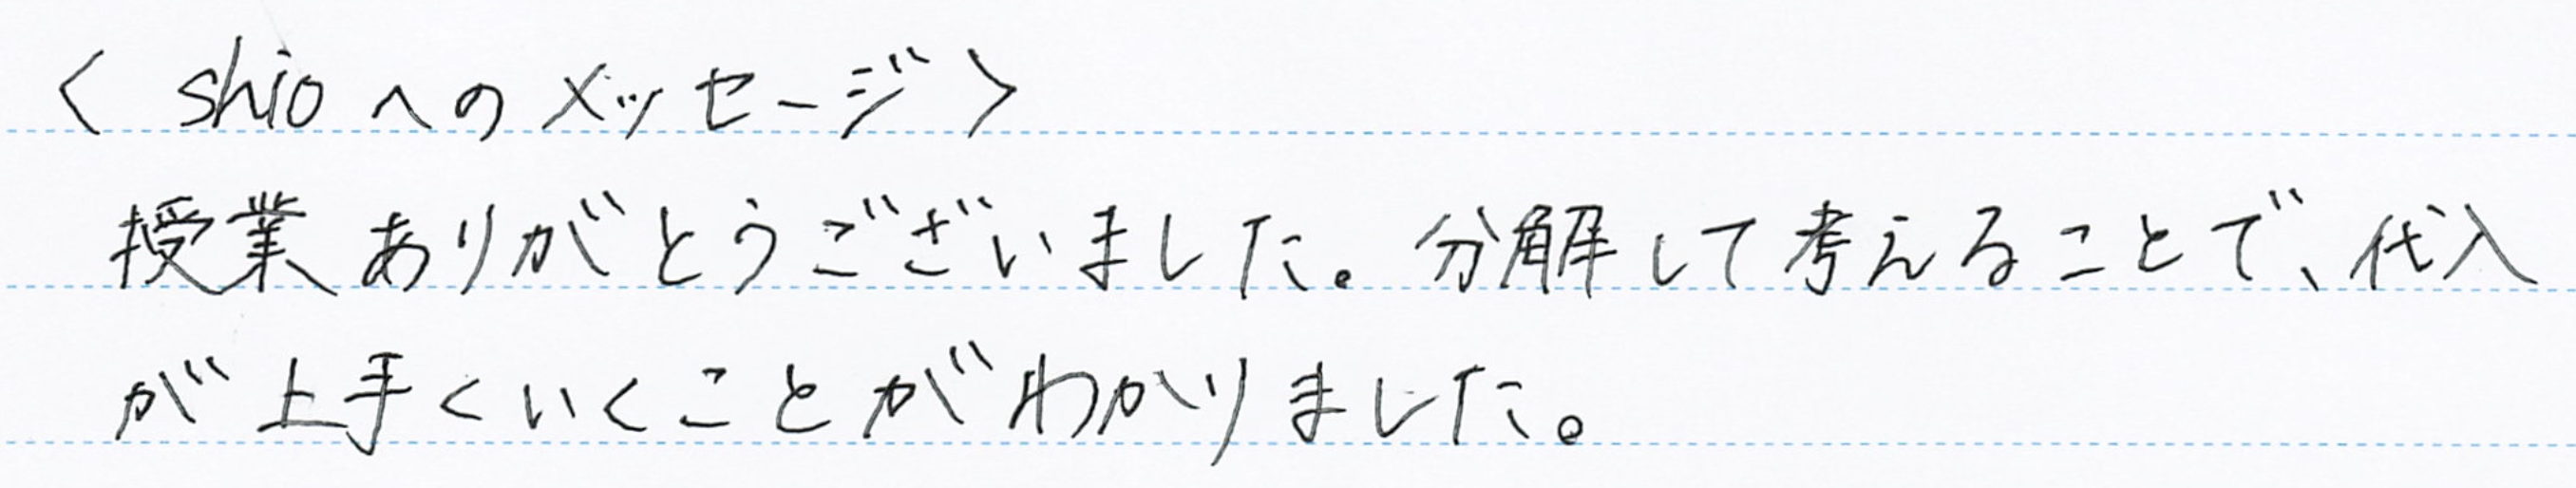 〈 shioへのメッセージ 〉
授業ありがとうございました。分解して考えることで、代入
が上手くいくことがわかりました。